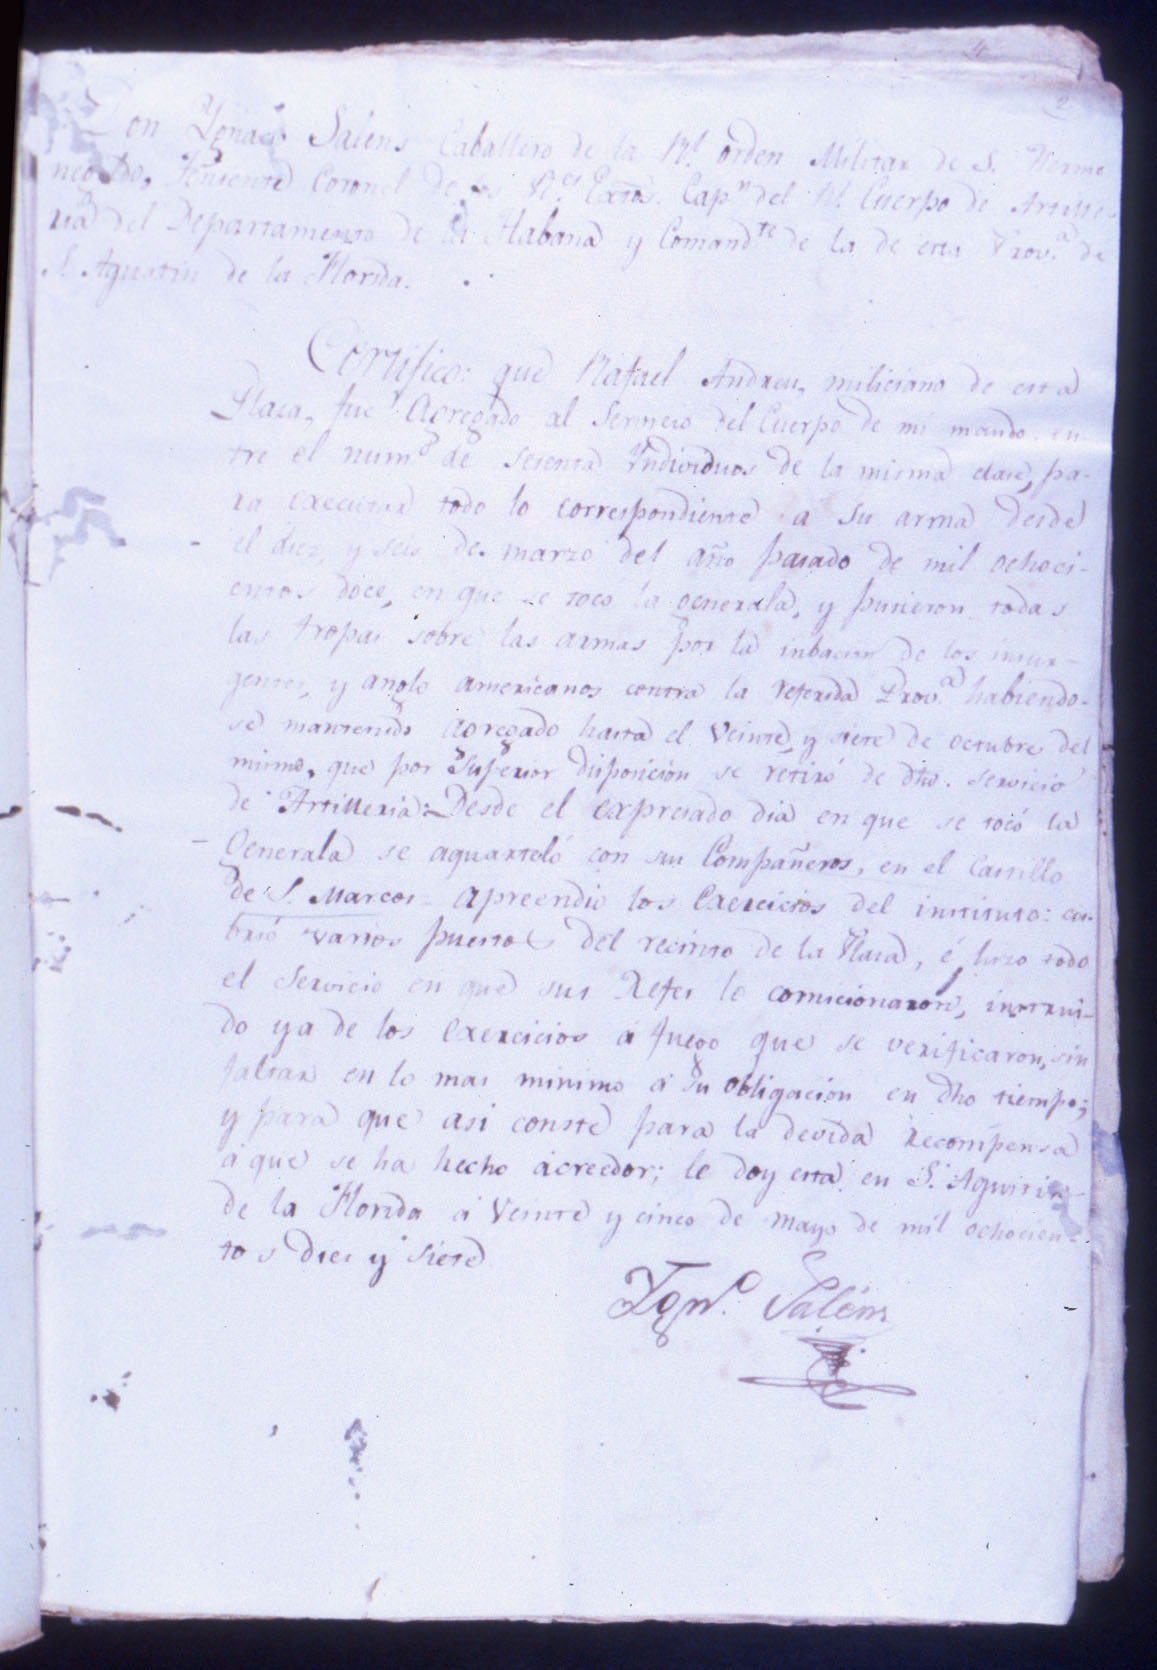 4
2
Don Ygnacio Salens Caballero de la Rl. orden Militar de S. Herme
negildo, Teniente Coronel de los Rs. Extos. Capn. del Rl. Cuerpo de Artille-
ria del Departamento de la Habana y Comandte. de la de esta Prova. de
S. Agustin de la Florida.
Certifico: que Rafael Andreu, miliciano de esta
Plaza, fue agregado al Servicio del Cuerpo de mi mando en-
tre el numo. de sesenta Yndividuos de la misma clase, pa-
ra executar todo lo correspondiente a su arma desde
el diez y seis de marzo del año pasado de mil ochoci-
entos doce, en que se tocó la generala, y pusieron todas
las tropas sobre las armas por la inbacion de los insur-
gentes, y anglo americanos contra la referida Prova. habiendo-
se mantenido agregado hasta el veinte y siete de octubre del
mismo, que por Superior disposicion se retiró de dho. servicio
de Artilleria: Desde el expresado dia en que se tocó la
Generala se aquarteló con sus Compañeros, en el Castillo
de S. Marcos apreendio los Exercicios del instituto: cu-
brió varios puestos del recinto de la Plaza, é hizo todo
el servicio en que sus Xefes lo comicionaron, instrui-
do ya de los exercicios a fuego que se verificaron, sin
faltar en lo mas minimo á su obligacion en dho tiempo;
y para que asi conste para la devida recompensa
á que se ha hecho acreedor; le doy esta en S. Agustin
de la Florida á Veinte y cinco de mayo de mil ochocien-
tos dies y siete
Ygno. Saléns